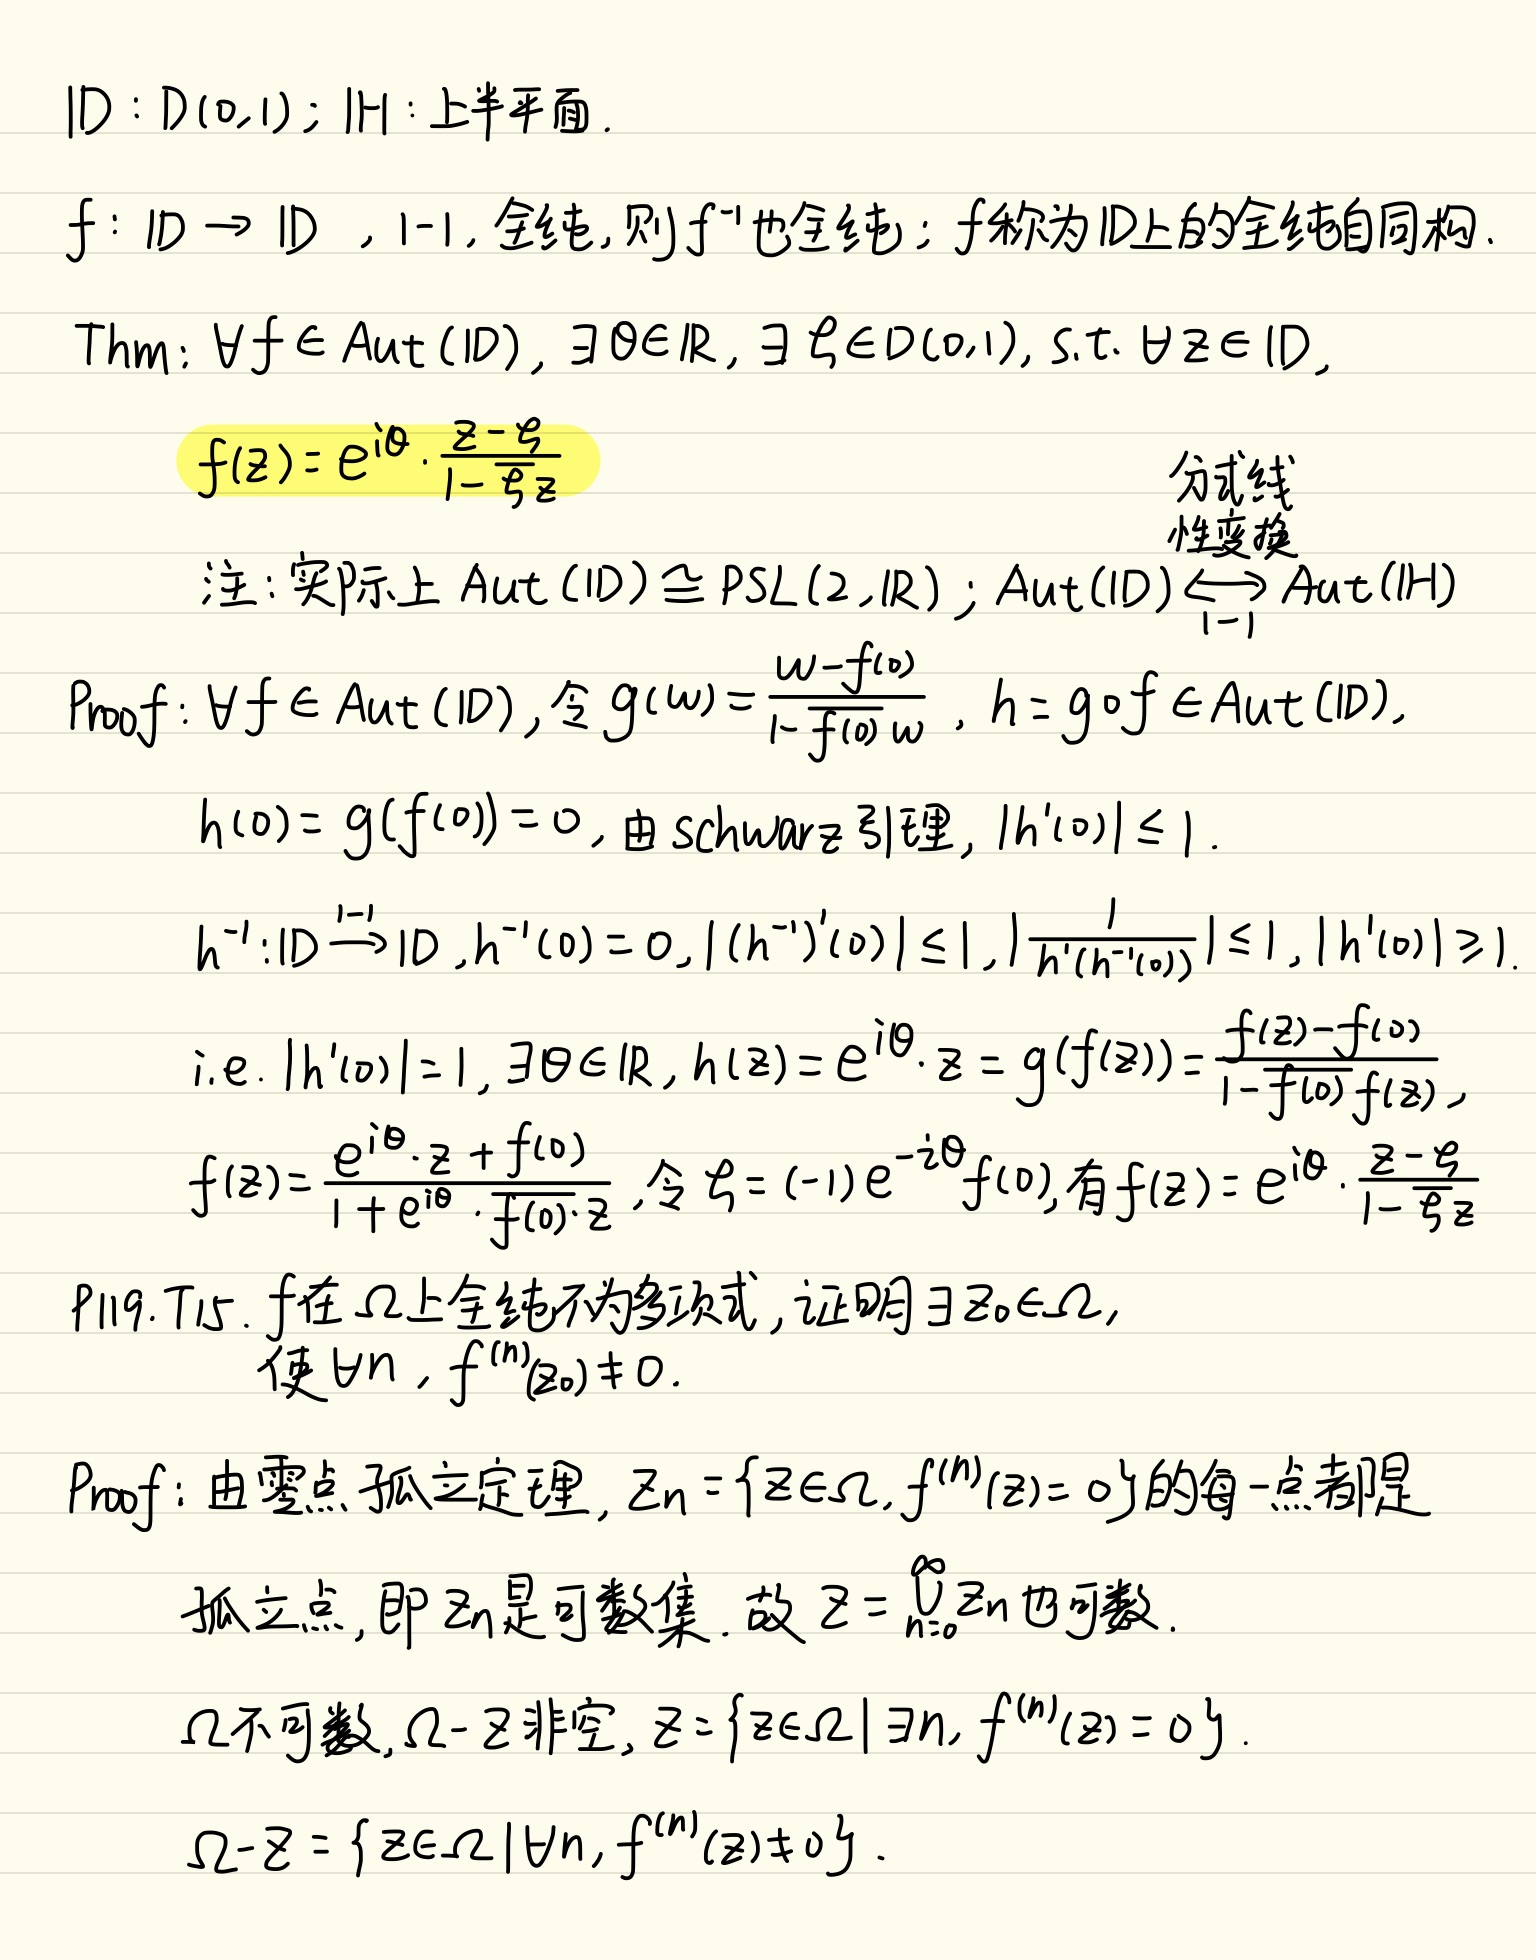 𝔻: D(0,1); ℍ: 上半平面.
f: 𝔻 → 𝔻, 1-1, 全纯, 则 f⁻¹ 也全纯; f 称为 𝔻 上的全纯自同构.
Thm: ∀f ∈ Aut(𝔻), ∃θ∈ℝ, ∃ξ∈D(0,1), s.t. ∀z∈𝔻,
f(z) = e^{iθ} · \frac{z-ξ}{1-\overline{ξ}z}
分式线
性变换
注: 实际上 Aut(𝔻) ≅ PSL(2,ℝ); Aut(𝔻) ⟷ Aut(ℍ)
1-1
Proof: ∀f ∈ Aut(𝔻), 令 g(w) = \frac{w-f(0)}{1-\overline{f(0)}w}, h = g∘f ∈ Aut(𝔻),
h(0) = g(f(0)) = 0, 由 schwarz 引理, |h'(0)| ≤ 1.
h⁻¹: 𝔻 \xrightarrow{1-1} 𝔻, h⁻¹(0) = 0, |(h⁻¹)'(0)| ≤ 1, |\frac{1}{h'(h⁻¹(0))}| ≤ 1, |h'(0)| ≥ 1.
i.e. |h'(0)| = 1, ∃θ∈ℝ, h(z) = e^{iθ} · z = g(f(z)) = \frac{f(z)-f(0)}{1-\overline{f(0)}f(z)},
f(z) = \frac{e^{iθ}·z+f(0)}{1+e^{iθ}·\overline{f(0)}·z}, 令 ξ = (-1)e^{-iθ}f(0), 有 f(z) = e^{iθ} · \frac{z-ξ}{1-\overline{ξ}z}
P119. T15. f 在 Ω 上全纯不为多项式, 证明 ∃z₀∈Ω,
使 ∀n, f^{(n)}(z₀) ≠ 0.
Proof: 由零点孤立定理, Zₙ = {z∈Ω, f^{(n)}(z) = 0} 的每一点都是
孤立点, 即 Zₙ 是可数集. 故 Z = \bigcup_{n=0}^{∞} Zₙ 也可数.
Ω 不可数, Ω-Z 非空, Z = {z∈Ω | ∃n, f^{(n)}(z) = 0}.
Ω-Z = {z∈Ω | ∀n, f^{(n)}(z) ≠ 0}.